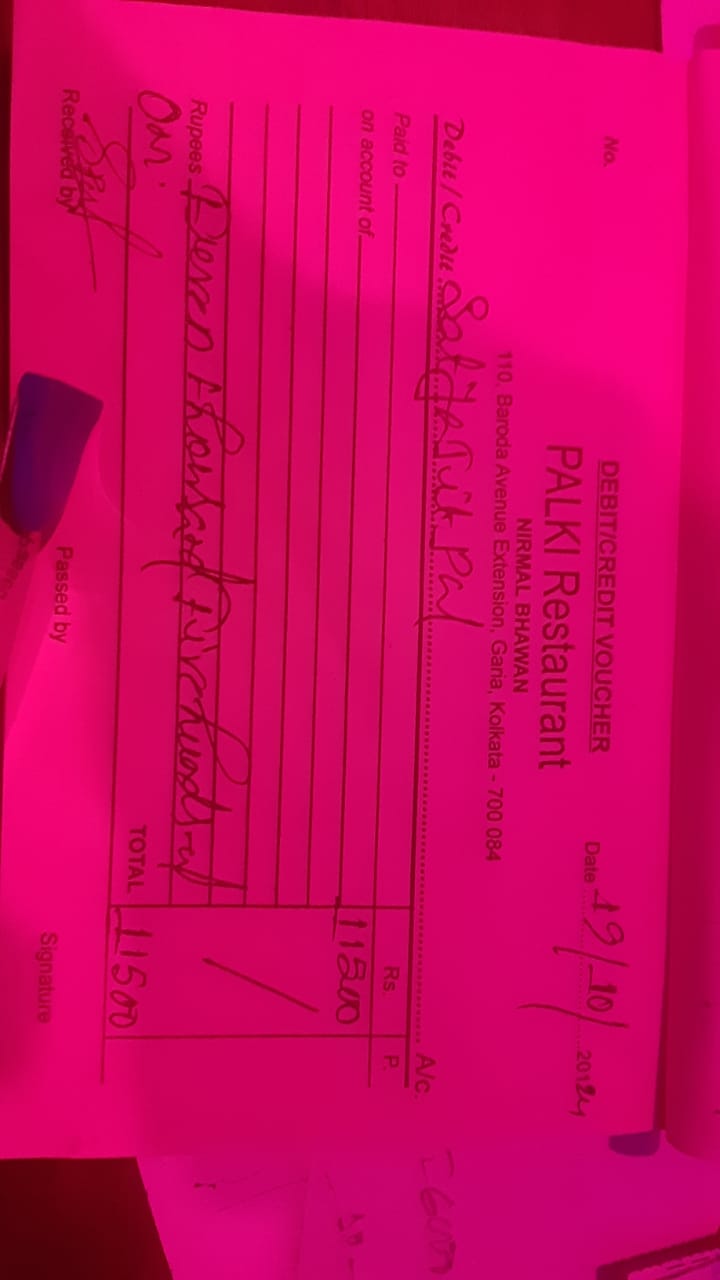 No.
DEBIT/CREDIT VOUCHER
PALKI Restaurant
NIRMAL BHAWAN
110, Baroda Avenue Extension, Garia, Kolkata - 700 084
Date 19/10/ 20124
Debit / Credit Pal A/c.
Paid to Rs. P.
on account of 11500
Rupees Eleven thousand Five hundred
TOTAL 11500
Received by
Passed by
Signature